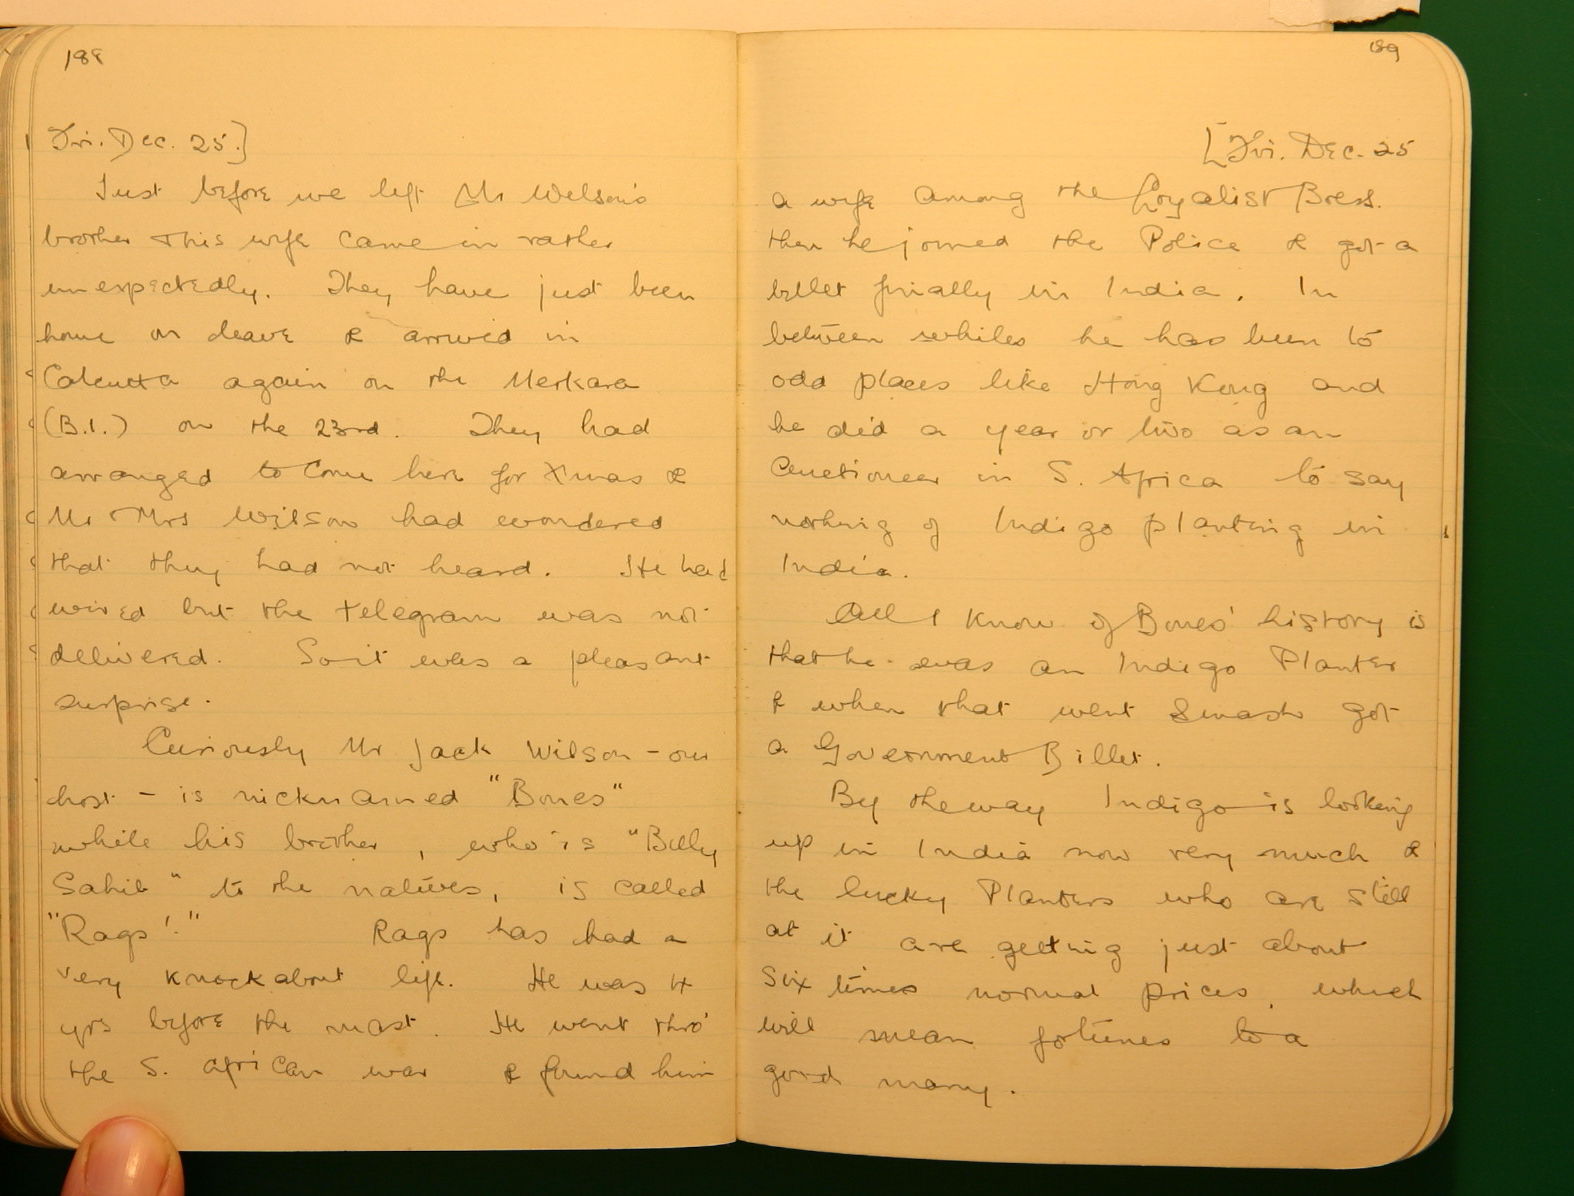 188
Fri. Dec. 25.]
Just before we left Mr Wilson's
brother & his wife came in rather
unexpectedly. They have just been
home on leave & arrived in
Calcutta again on the Merkara
(B.I.) on the 23rd. They had
arranged to come here for Xmas &
Mr & Mrs Wilson had wondered
that they had not heard. He had
wired but the telegram was not
delivered. So it was a pleasant
surprise.
Curiously Mr Jack Wilson - our
host - is nicknamed "Bones"
while his brother, who is "Billy
Sahib" to the natives, is called
"Rags'."  Rags has had a
very knockabout life. He was 4
yrs before the mast. He went thro'
the S. African war & found him
189
[Fri. Dec. 25
a wife among the Loyalist Boers.
then he joined the Police & got a
billet finally in India. In
between whiles he has been to
odd places like Hong Kong and
he did a year or two as an
auctioneer in S. Africa to say
nothing of Indigo planting in
India.
All I know of Bones' history is
that he was an Indigo Planter
& when that went smash got
a Government Billet.
By the way Indigo is looking
up in India now very much &
the lucky Planters who are still
at it are getting just about
six times normal prices, which
will mean fortunes to a
good many.